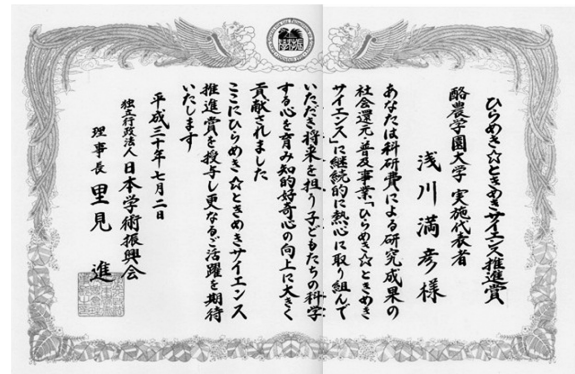 ひらめき☆ときめきサイエンス推進賞
酪農学園大学 実施代表者
浅川満彦様
あなたは科研費による研究成果の
社会還元・普及事業「ひらめき☆ときめき
サイエンス」に継続的に熱心に取り組んで
いただき将来を担う子どもたちの科学
する心を育み知的好奇心の向上に大きく
貢献されました
ここにひらめき☆ときめきサイエンス
推進賞を授与し更なるご活躍を期待
いたします
平成三十年七月二日
独立行政法人日本学術振興会
理事長 里見 進